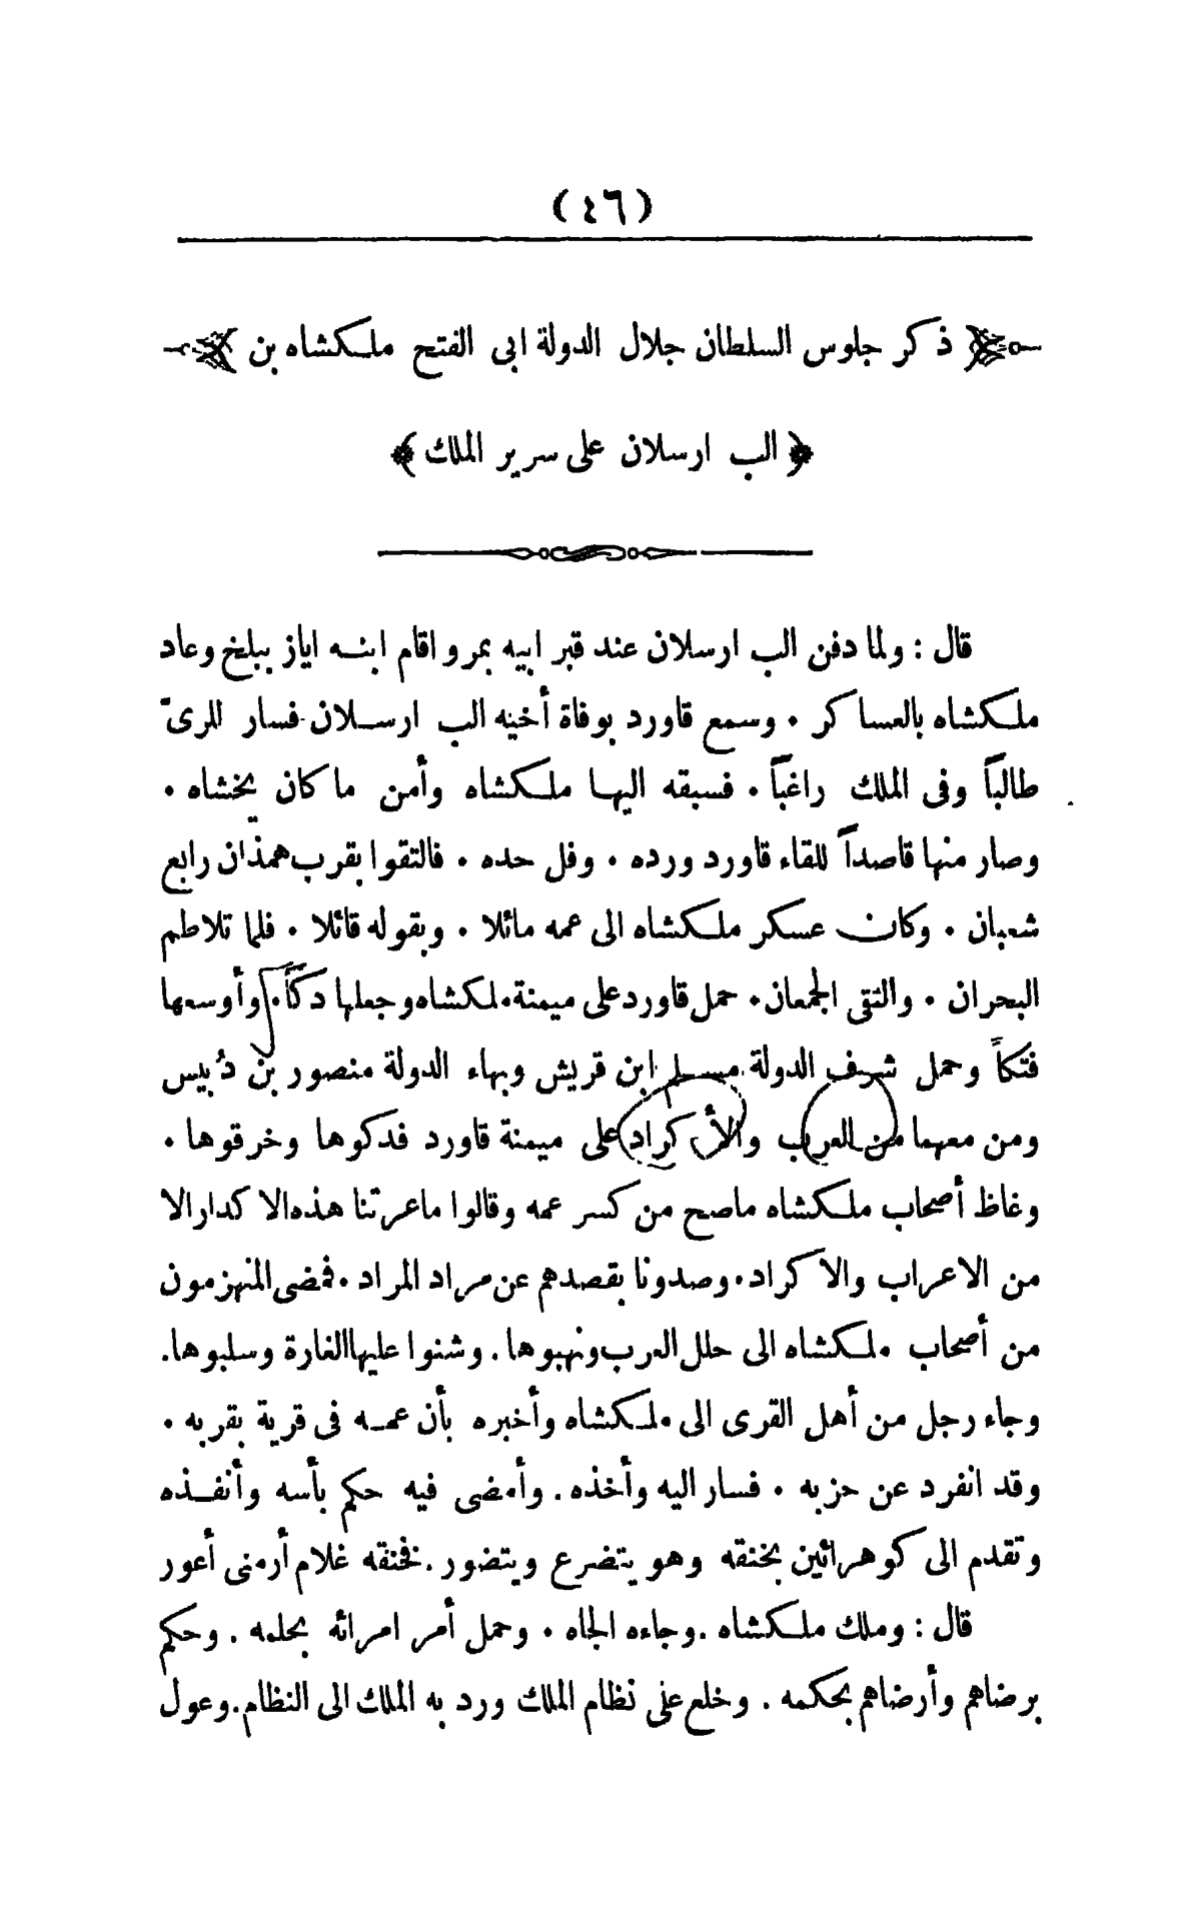 (٤٦)
ذكر جلوس السلطان جلال الدولة ابى الفتح ملكشاه بن
الب ارسلان على سرير الملك
قال : ولما دفن الب ارسلان عند قبر ابيه بمرو اقام ابنه اياز ببلخ وعاد
ملكشاه بالعساكر . وسمع قاورد بوفاة أخيه الب ارسلان فسار للرىّ
طالباً وفى الملك راغباً . فسبقه اليها ملكشاه وأمن ما كان يخشاه .
وصار منها قاصداً للقاء قاورد ورده . وفل حده . فالتقوا بقرب همذان رابع
شعبان . وكان عسكر ملكشاه الى عمه مائلا . وبقوله قائلا . فلما تلاطم
البحران . والتقى الجمعان . حمل قاورد على ميمنة ملكشاه وجعلها دكّاً . وأوسعها
فتكاً وحمل شرف الدولة مسلم ابن قريش وبهاء الدولة منصور بن دُبيس
ومن معهما من العرب والأكراد على ميمنة قاورد فدكوها وخرقوها .
وغاظ أصحاب ملكشاه ماصح من كسر عمه وقالوا ماعرتنا هذه الاكدار الا
من الاعراب والاكراد . وصدونا بقصدهم عن مراد المراد . فمضى المنهزمون
من أصحاب ملكشاه الى حلل العرب ونهبوها . وشنوا عليها الغارة وسلبوها .
وجاء رجل من أهل القرى الى ملكشاه وأخبره بأن عمه فى قرية بقربه .
وقد انفرد عن حزبه . فسار اليه وأخذه . وأمضى فيه حكم بأسه وأنفذه
وتقدم الى كوهرائين بخنقه وهو يتضرع ويتضور . فخنقه غلام أرمنى أعور
قال : وملك ملكشاه . وجاءه الجاه . وحمل أمر امرائه بحلمه . وحكم
برضاهم وأرضاهم بحكمه . وخلع على نظام الملك ورد به الملك الى النظام . وعول